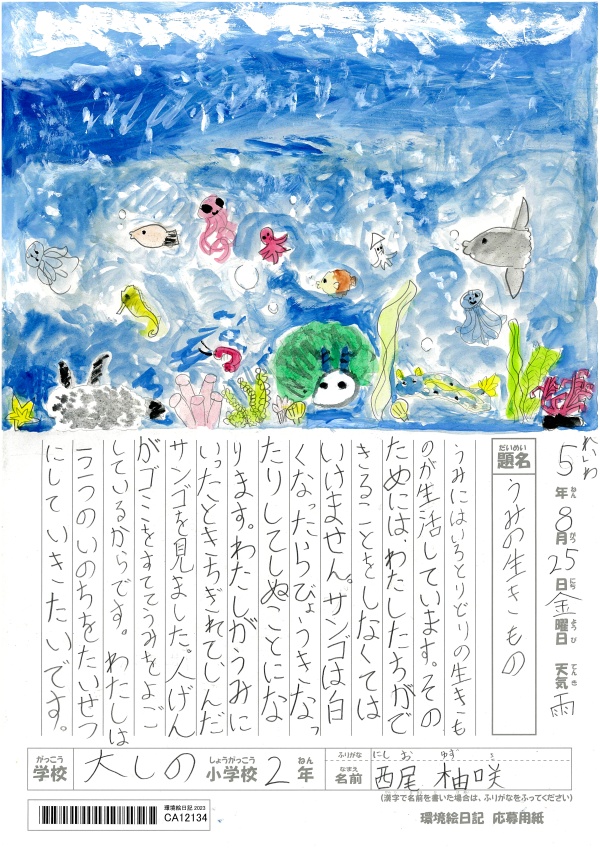 れいわ
5年8月25日金曜日 天気雨
ねん がつ にち ようび てんき
だいめい
題名
うみの生きもの
うみにはいろとりどりの生きも
のが生活しています。その
ためには、わたしたちがで
きることをしなくては
いけません。サンゴは白
くなったらびょうきなっ
たりしてしぬことにな
ります。わたしがうみに
いったときちぎれてしんだ
サンゴを見ました。人げん
がゴミをすててうみをよご
しているからです。わたしは
一つ一つのいのちをたいせつ
にしていきたいです。
がっこう しょうがっこう ねん
学校 大しの 小学校 2年
ふりがな にし お ゆず き
なまえ
名前 西尾 柚咲
(漢字で名前を書いた場合は、ふりがなをふってください)
環境絵日記 2023
CA12134
環境絵日記 応募用紙